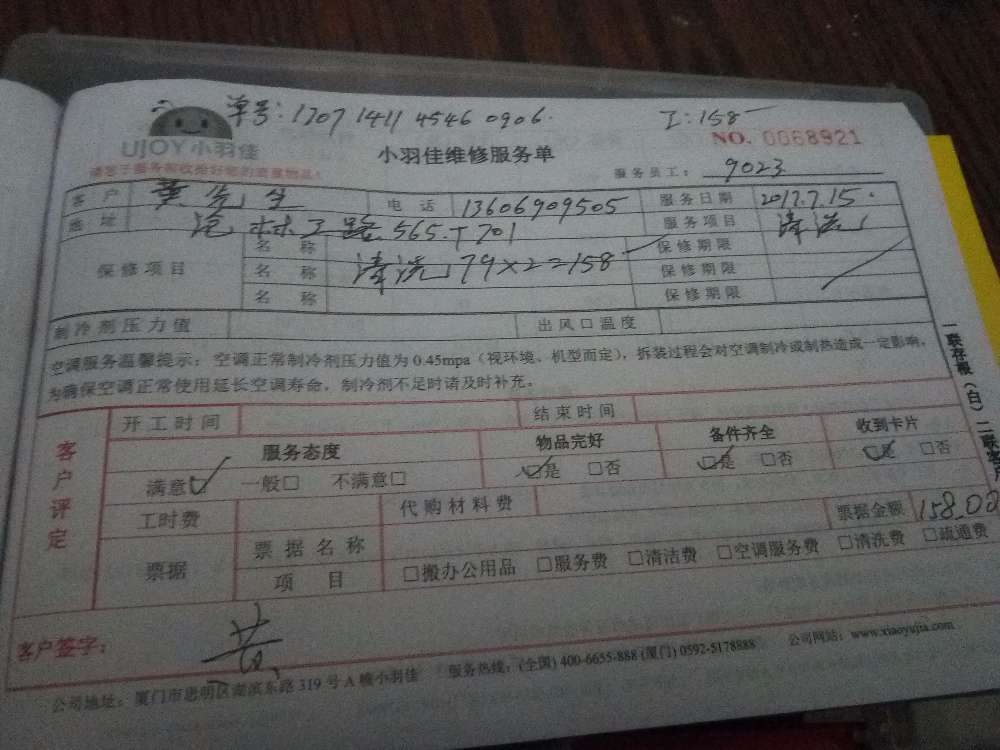 单号: 1707 1411 4546 0906.
工: 158
UJOY小羽佳
NO. 0068921
小羽佳维修服务单
服务员工: 9023
客户 黄先生 电话 13606909505 服务日期 2017.7.15.
地址 沧林二路 565-1701 服务项目 清洗
保修项目 名称 保修期限
名称 清洗 79×2=158 保修期限
名称 保修期限
制冷剂压力值 出风口温度
空调服务温馨提示:空调正常制冷剂压力值为0.45mpa(视环境、机型而定),拆装过程会对空调制冷或制热造成一定影响,
为确保空调正常使用延长空调寿命,制冷剂不足时请及时补充。
客户评定
开工时间 结束时间
服务态度 物品完好 备件齐全 收到卡片
满意☑ 一般□ 不满意□ ☑是 □否 ☑是 □否 ☑是 □否
工时费 代购材料费 票据金额 158.00
票据 票据名称
项目 □搬办公用品 □服务费 □清洁费 □空调服务费 □清洗费 □疏通费
客户签字: 黄
公司地址:厦门市思明区湖滨东路319号A幢小羽佳 服务热线:(全国) 400-6655-888 (厦门) 0592-5178888 公司网站:www.xiaoyujia.com
一联存根(白) 二联客户